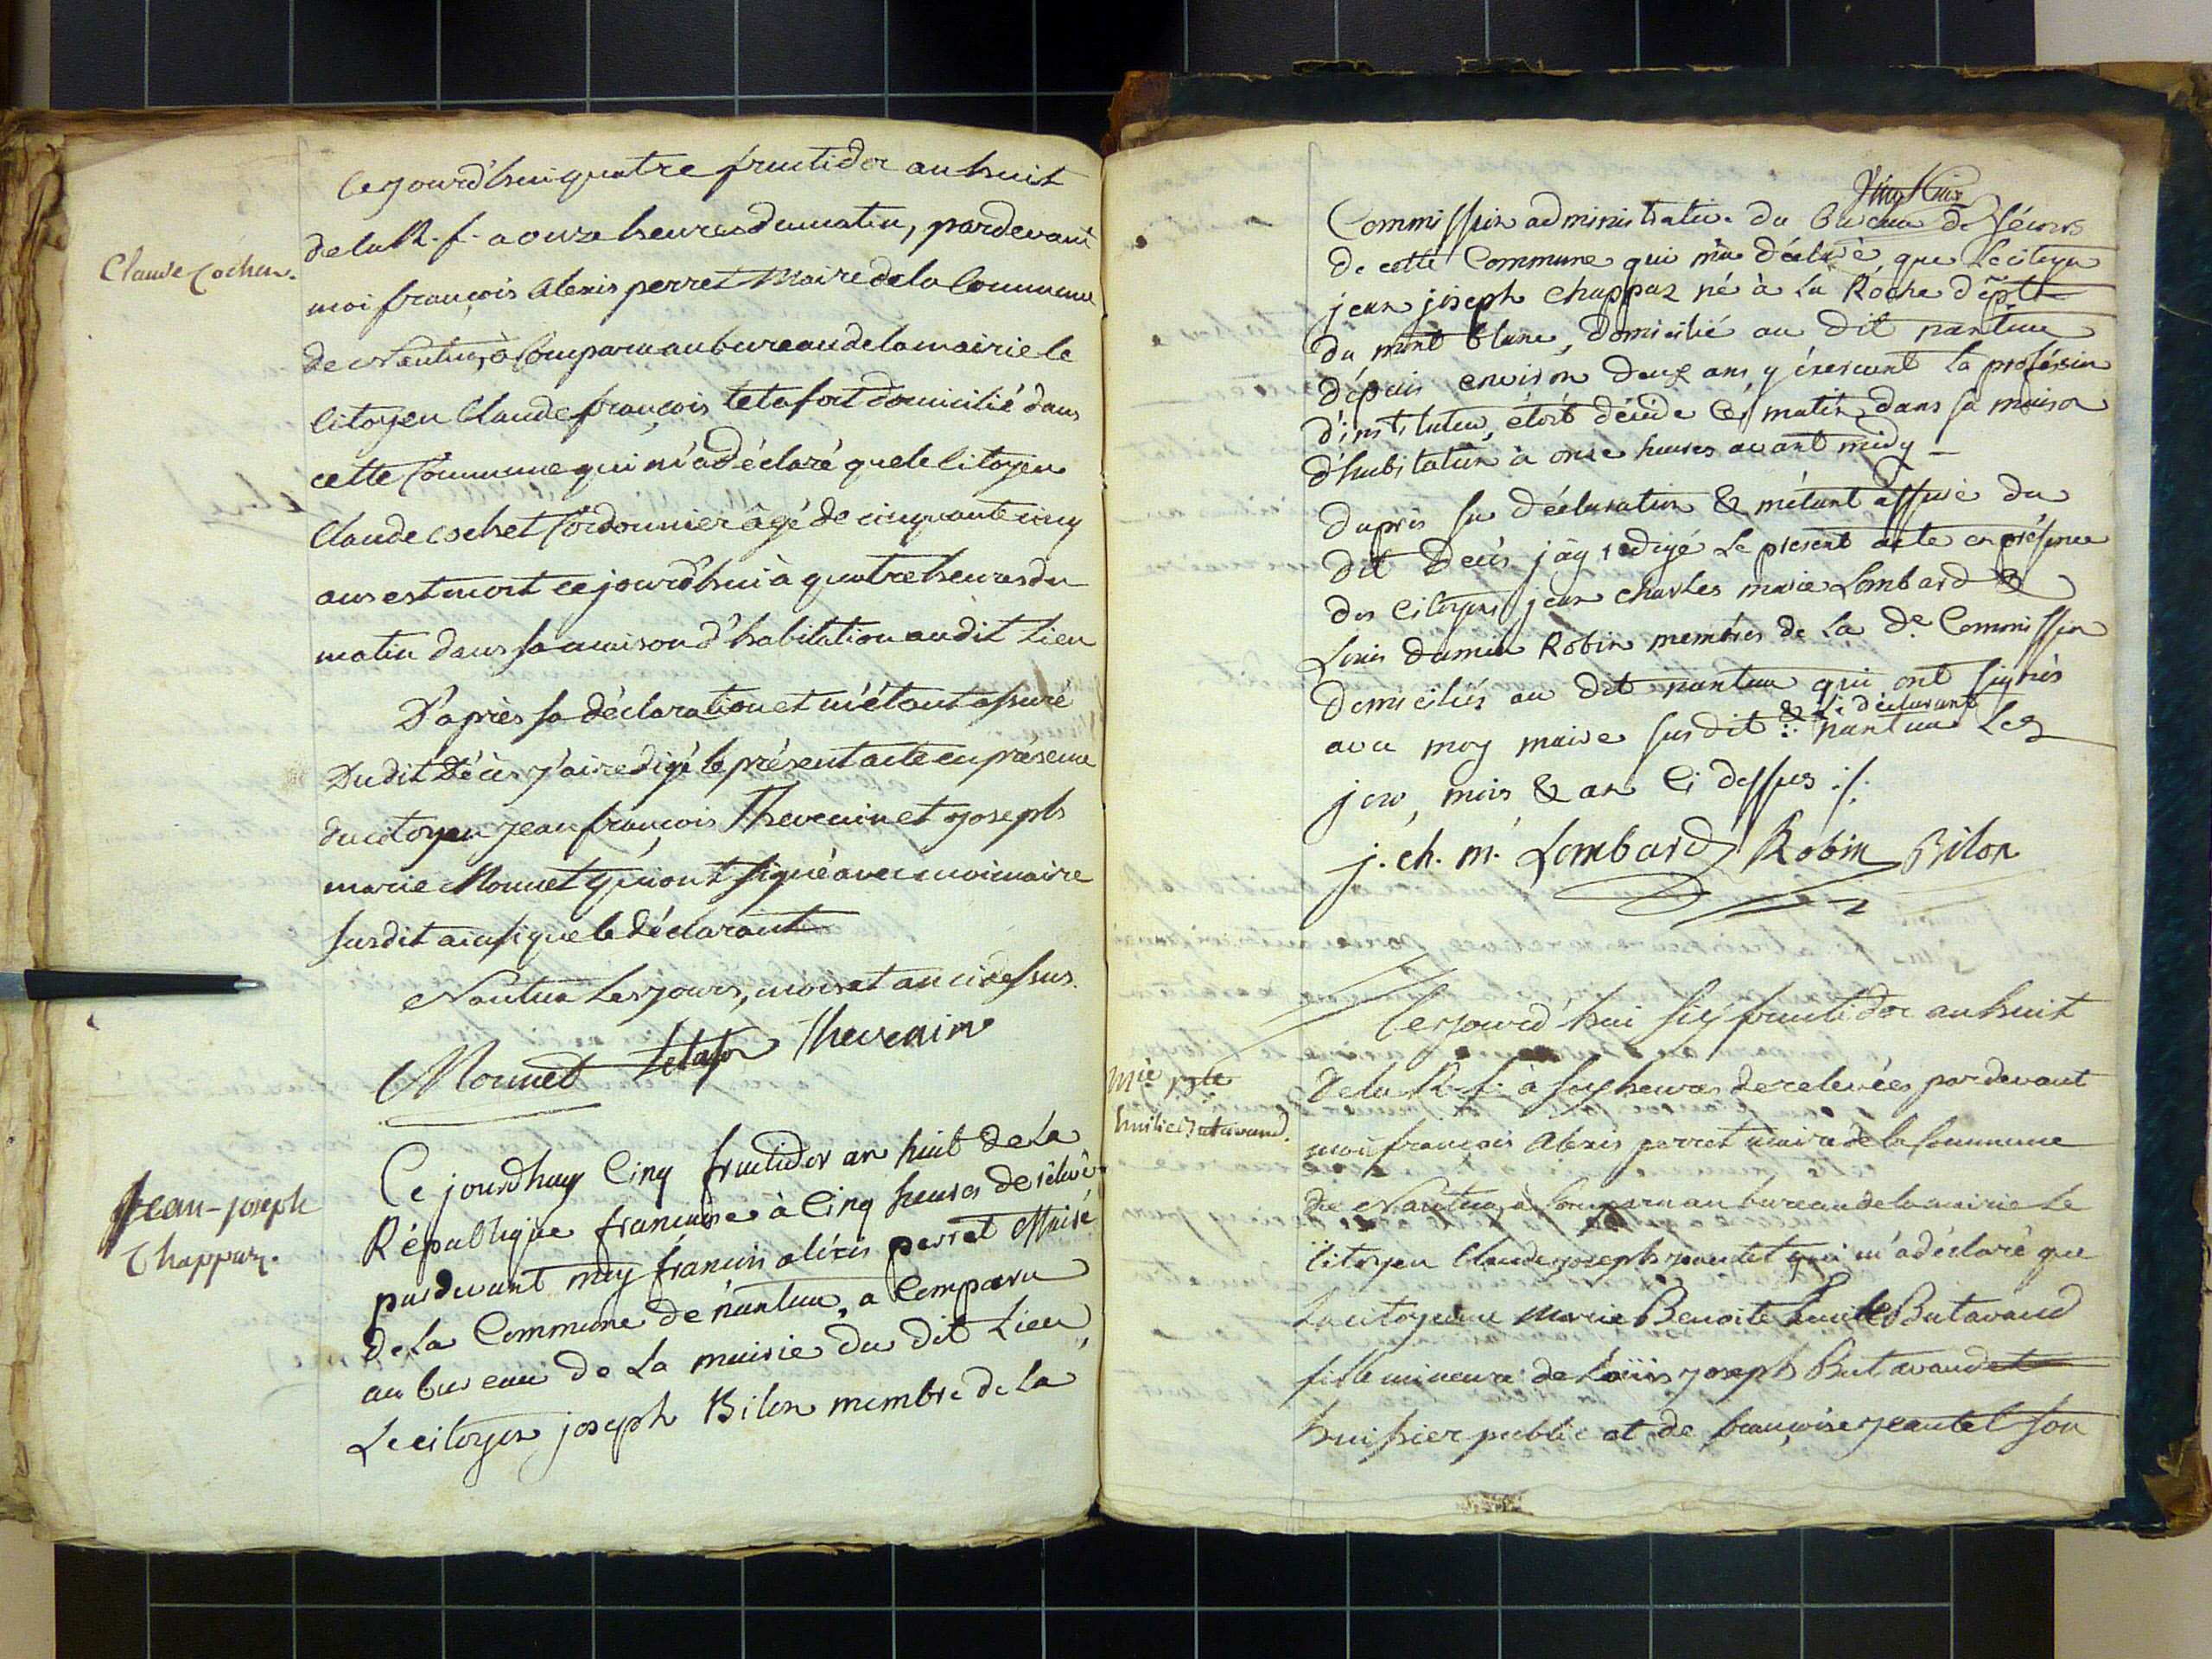 Cejourd'hui quatre fructidor an huit
de la R. f. a onze heures du matin, pardevant
Claude Cochet.
moi françois Alexis perret Maire de la Commune
de Nantua, à Comparu au bureau de la mairie le
Citoyen Claude françois tetafort domicilié dans
cette Commune qui m'a déclaré que le Citoyen
Claude Cochet Cordonnier âgé de cinquante cinq
ans est mort ce jourd'hui à quatre heures du
matin dans sa maison d'habitation audit Lieu
D'après sa déclaration et m'étant assuré
Dudit Décès j'ai redigé le présent acte en présence
du citoyen jean françois Thevenin et joseph
marie Monnet qui ont signé avec moi maire
susdit ainsi que le Déclarant
Nantua Les jours, mois et an ci dessus.
Monnet tetafor Thevenin
Jean-joseph
Chappaz.
Ce jourdhuy Cinq fructidor an huit de La
République francaise à Cinq heures de relevé
pardevant moy francois aléxis perret Maire
de La Commune de nantua, a Comparu
au bureau de La mairie du dit Lieu,
Le citoyen joseph Bilon membre de La
Commission administrative du Bureau de Sécours
de cette Commune qui m'a déclaré que Le citoyen
jean joseph chappaz né à La Roche dépt
du mont blanc, domicilié au dit nantua
dépuis environ deux ans, y éxercant la proféssion
d'instituteur, étoit décédé Ce matin, dans sa maison
d'habitation à onze heures avant midy
daprès sa déclaration & m'étant assuré du
dit Decès j'ay redigé Le present acte en présence
des Citoyens jean charles marie Lombard &
Louis damien Robin membres de La de. Commission
domiciliés au dit nantua qui ont signés
& le déclarant
avec moy maire susdit :. nantua Les
jour, mois & an Ci dessus ./.
j. ch. m. Lombard Robin Bilon
Cejourd'hui six fructidor an huit
Mie. Bte.
huilie Butavand.
de la R. f. à six heures de relevées pardevant
moi françois Alexis perret maire de la Commune
de Nantua, à Comparu au bureau de la mairie Le
Citoyen Claude joseph jeantet qui m'a déclaré que
La citoyenne Marie Benoite Lucile Butavand
fille mineure de Loüis joseph Butavand et
huissier public et de françoise jeantet son